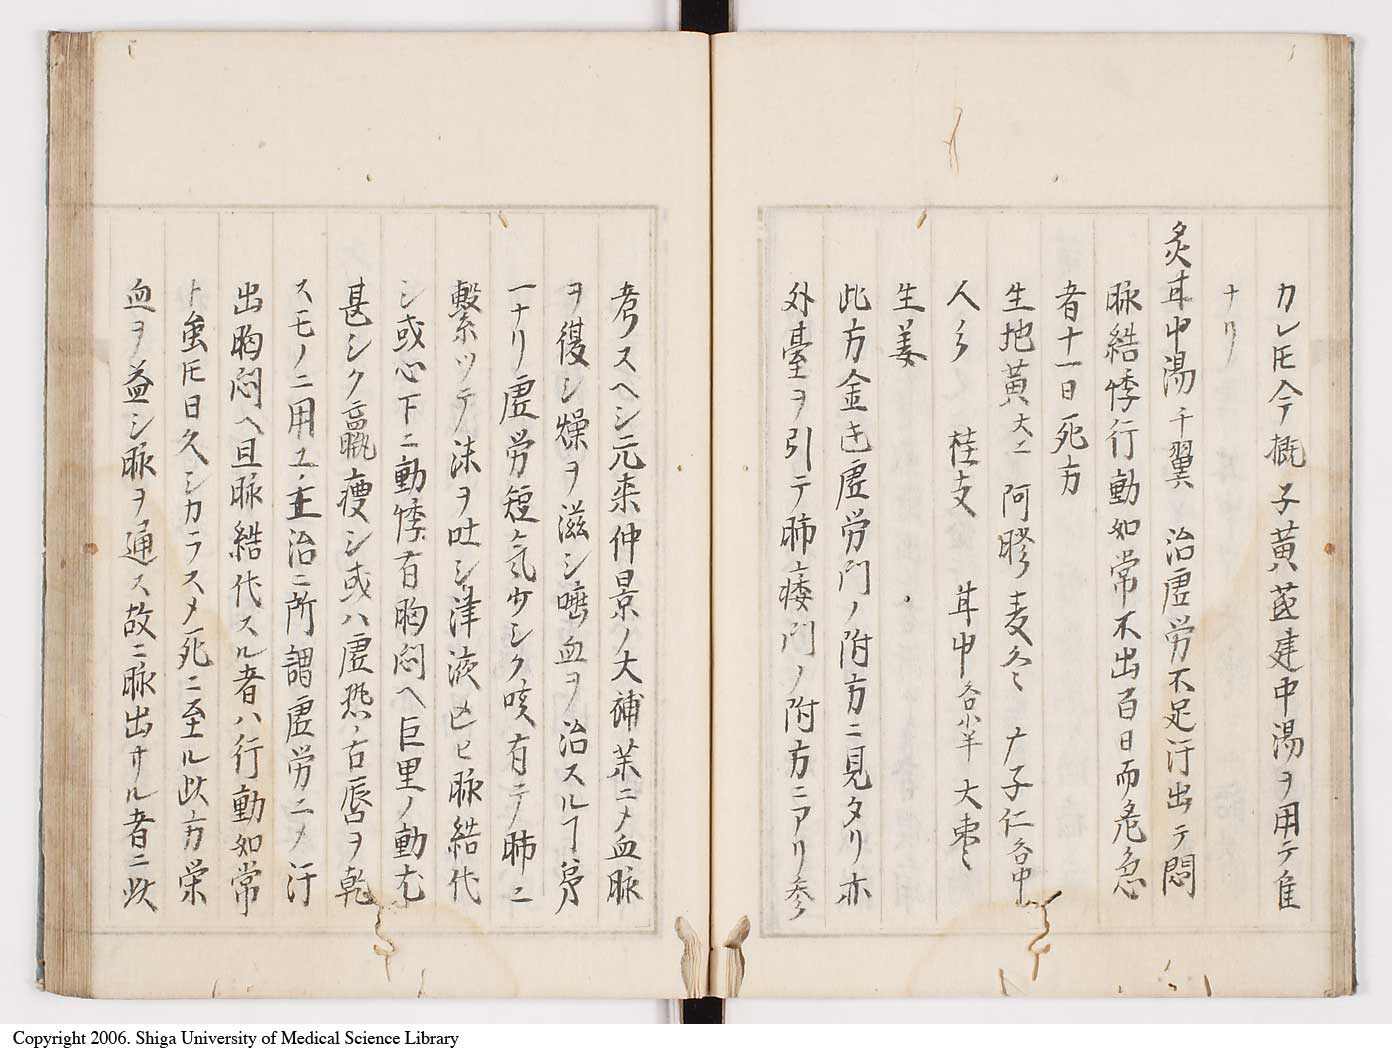 カレ𪜈今概子黄茋建中湯ヲ用テ隹
ナリ
炙甘中湯千翼 治虚労不足汗出テ悶
脉結悸行動如常不出百日而危急
者十一日死方
生地黄大二 阿膠 麦冬 广子仁各中
人参 桂支 甘中各小半 大棗
生姜
此方金匱虚労門ノ附方ニ見タリ亦
外臺ヲ引テ肺痿門ノ附方ニアリ参
考スヘシ元来仲景ノ大補薬ニ〆血脉
ヲ復シ燥ヲ滋シ血ヲ治スルヿ第
一ナリ虚労短気少シク咳有テ肺ニ
繋ツテ沫ヲ吐シ津液亡ヒ脉結代
シ或心下ニ動悸有胸悶ヘ巨里ノ動尤
甚シク羸痩シ或ハ虚熱ノ舌唇ヲ乾
スモノニ用ユ主治ニ所謂虚労ニ〆汗
出胸悶ヘ且脉結代スル者ハ行動如常
ト虽𪜈日久シカラス〆死ニ至ル此方栄
血ヲ益シ脉ヲ通ス故ニ脉出サル者ニ此
Copyright 2006. Shiga University of Medical Science Library